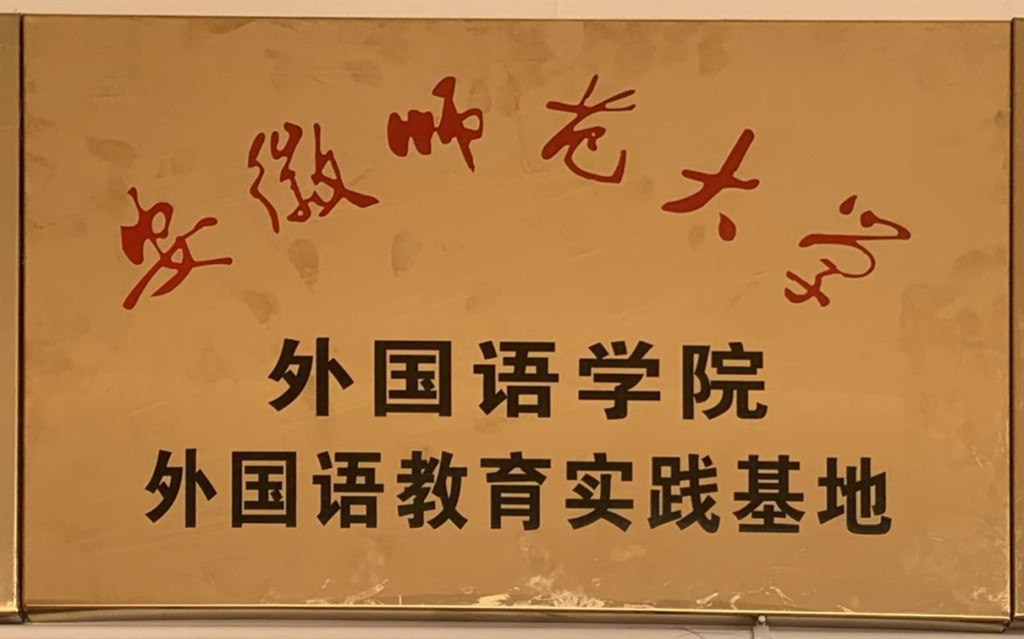 安徽师范大学
外国语学院
外国语教育实践基地